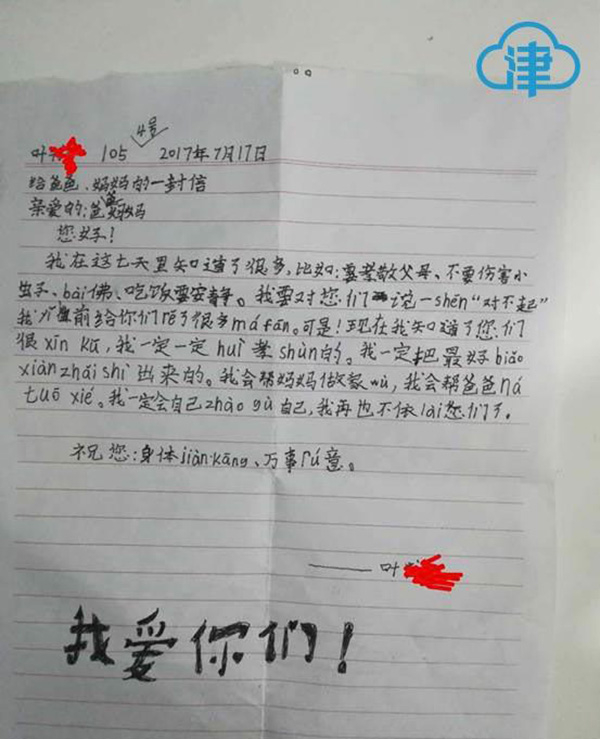 津
4号
叶 105 2017年7月17日
给爸爸、妈妈的一封信
亲爱的:爸爸妈妈
您好!
我在这七天里知道了很多,比如:要孝敬父母、不要伤害小
虫子、bài佛、吃饭要安静。我要对您们说一shēn“对不起”
我以前给你们名了很多má fān。可是!现在我知道了您们
很xīn kǔ,我一定一定huì孝shùn的。我一定把最好biǎo
xiàn zhǎi shì出来的。我会帮妈妈做家wù,我会帮爸爸ná
tuō xié。我一定会自己zhào gù自己,我再也不依lài您们了。
祝您:身体jiàn kāng、万事rú意。
—— 叶
我爱你们!